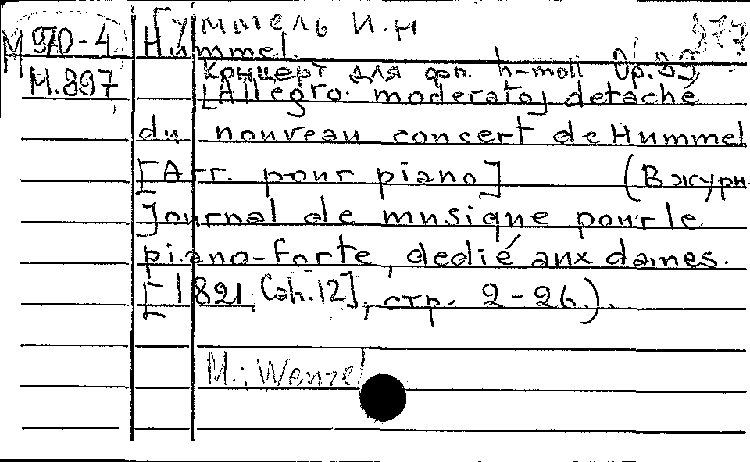 М 970-4
М.897
[Гуммель И.Н 377
Hummel.
Концерт для фп. h-moll Op.89
[Allegro moderato] detaché
du nouveau concert de Hummel
[Arr. pour piano] (В журн
Journal de musique pour le
piano-forte, dedié aux dames.
[-1821, Cah.12], стр. 2-26.).
М.: Wenzel